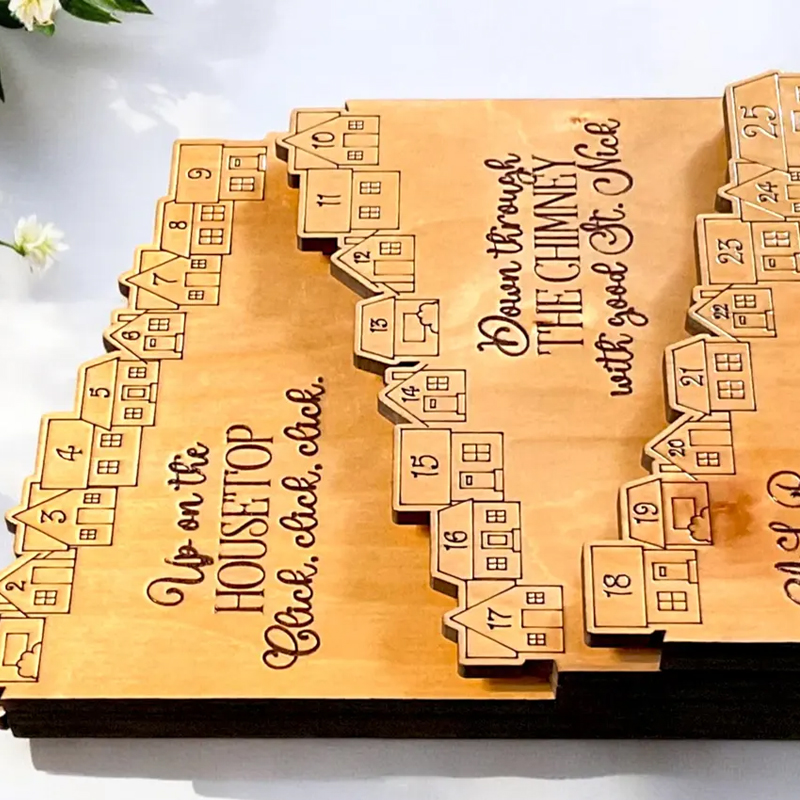 Up on the
HOUSETOP
Click, click, click.
Down through
THE CHIMNEY
with good St. Nick
2
3
4
5
6
7
8
9
10
11
12
13
14
15
16
17
18
19
20
21
22
23
24
25